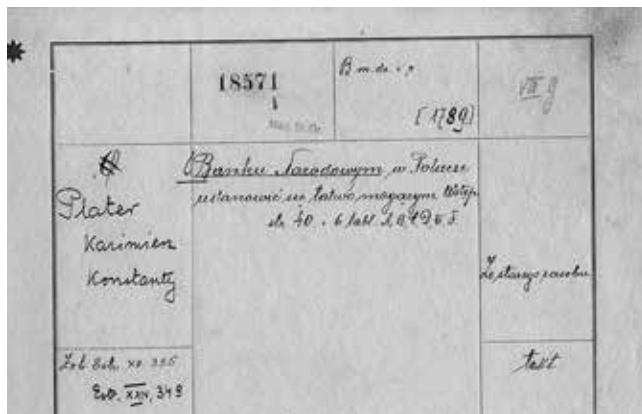 18571
1
B. m. dr. i r.
[1789]
VIII g
Plater
Kazimierz
Konstanty
O Banku Narodowym w Polscze
ustanowić się łatwo mogącym Wstęp
str. 40 . 6 tabl.
Ze starego zasobu
Zob. Est. XII. 356
Estr. XXIV, 349
tekst